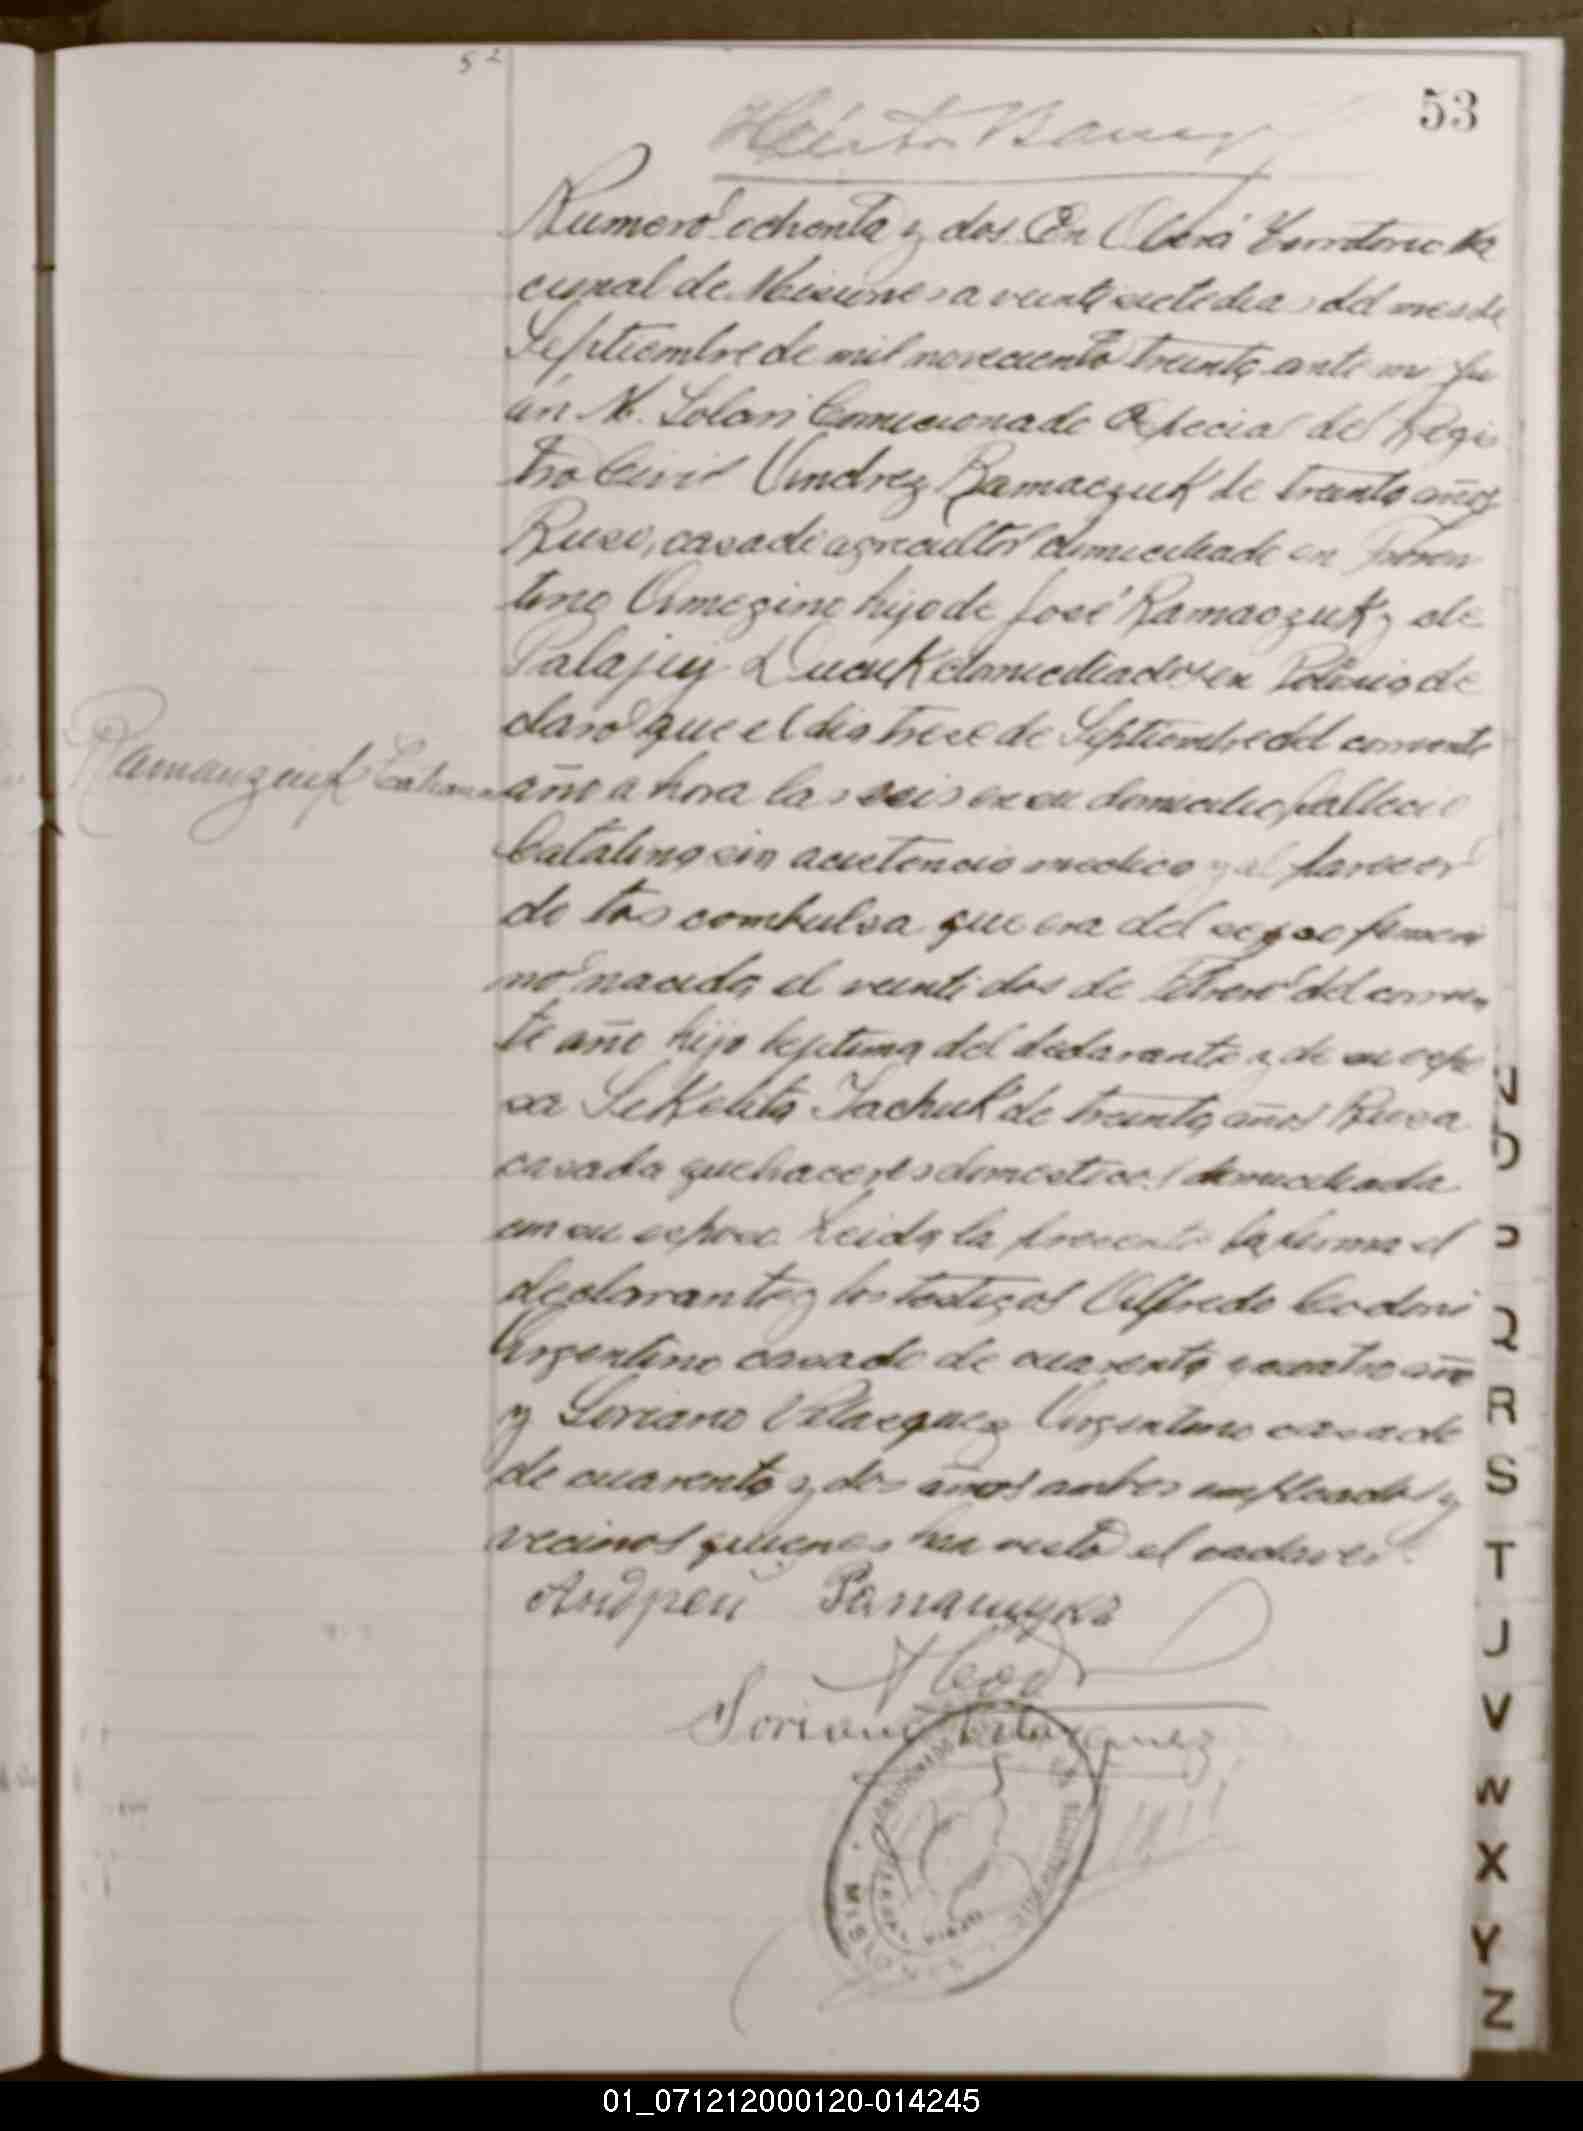 52
53
Numero ochenta y dos En Oberá Territorio Na
cional de Misiones a veinti siete dias del mes de
Septiembre de mil novecientos treinta ante mi Ju
an M. Solari Comicionado Especial del Regis
tro Civil Andrez Ramaczuk de treinta años
Ruso, casado agricultor domiciliado en
Amegino hijo de José Ramaczuk y de
Palajey Lucuk domiciliados en Polonia de
claró que el dia trece de Septiembre del corriente
Ramanzeuk Catalina
año a hora las seis en su domicilio fallecio
Catalina sin acistencia medica y al parecer
de tos combulsa que era del segso femeni
no nacida el veinti dos de Febrero del corrien
te año hija septima del declarante y de su espo
sa Sekleta Iachuk de treinta años Rusa
casada quehaceres domesticos domiciliada
con su esposo Leida la presente la firma el
declarante y los testigos Alfredo Codoni
Argentino casado de cuarenta y cuatro año
y Soriano Velasquez Argentino casado
de cuarenta y dos años ambos empleados y
vecinos quienes han visto el cadaver.
Андрей
Soriano Velasquez
MISIONES
N
O
P
Q
R
S
T
J
V
W
X
Y
Z
01_071212000120-014245